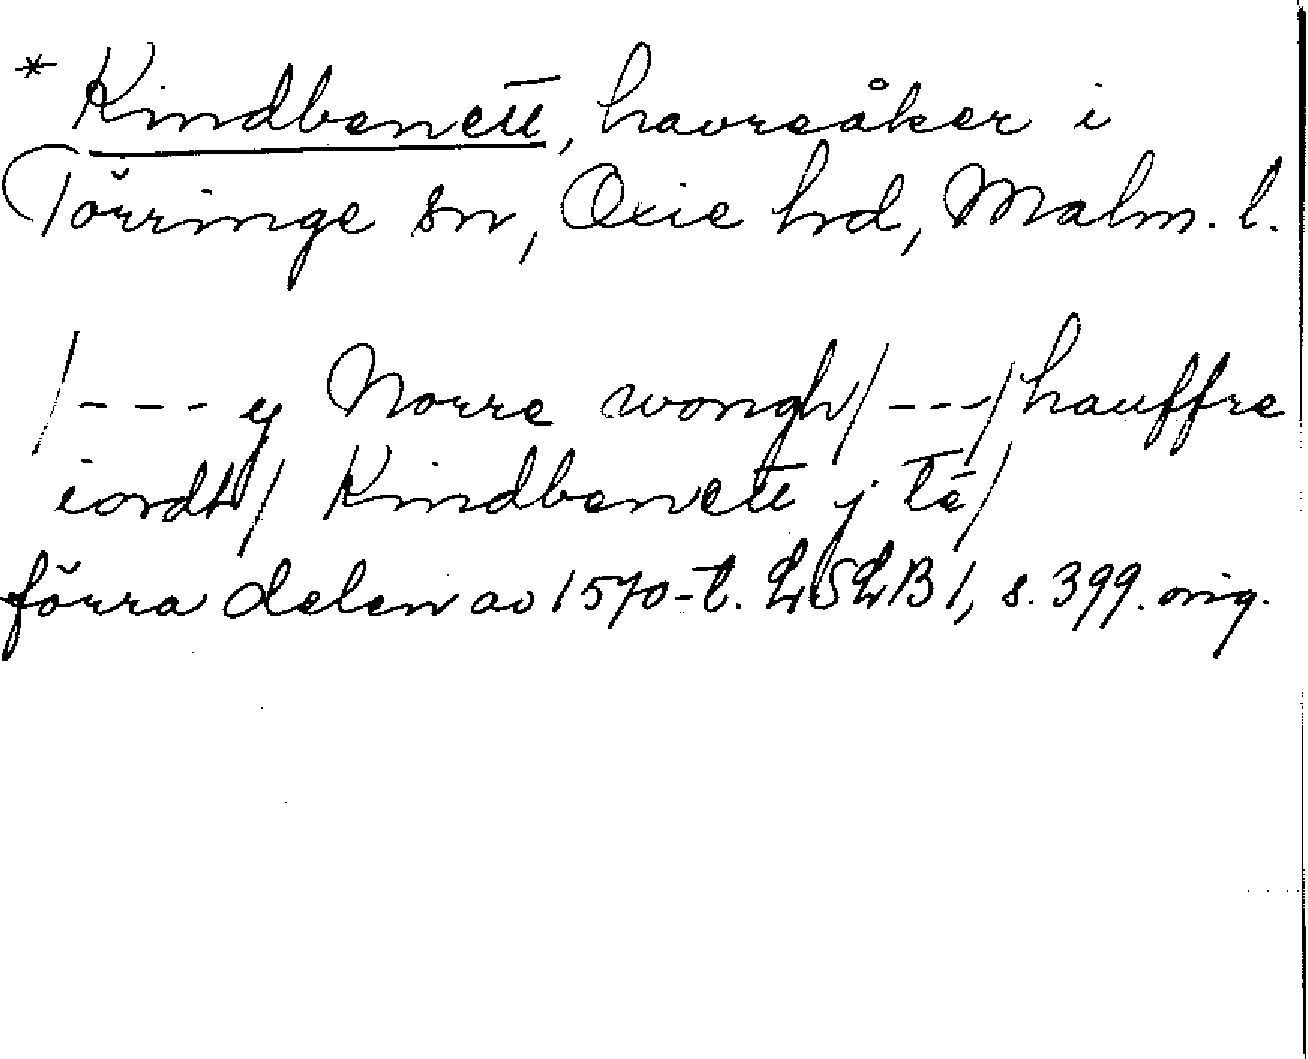 * Kindbenett, havreåker i
Törringe sn, Oxie hd, Malm. l.
/--- y Norre wongh/---/hauffre
iordt/ Kindbenett j té/
förra delen av 1570-t. LSLB 1, s. 399. orig.